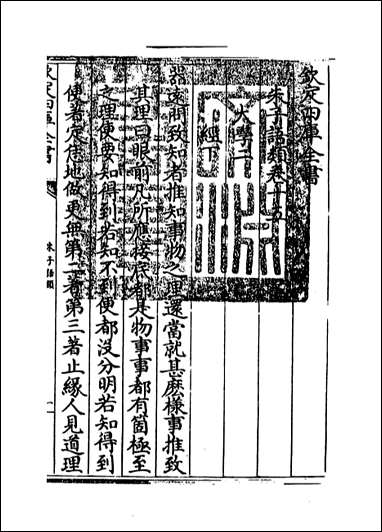 欽定四庫全書
朱子語類卷十五
大學二
經下
器遠問致知者推知事物之理還當就甚麼樣事推致
其理曰眼前凡所應接底都是物事事都有箇極至
之理便要知得到若知不到便都沒分明若知得到
便著定恁地做更無第二著第三著止緣人見道理
欽定四庫全書
朱子語類
一